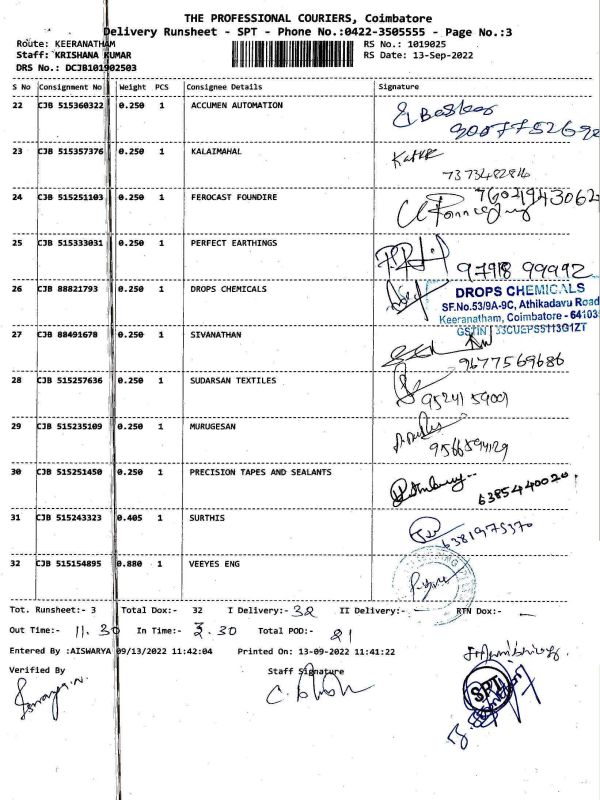 THE PROFESSIONAL COURIERS, Coimbatore
Delivery Runsheet - SPT - Phone No.:0422-3505555 - Page No.:3
Route: KEERANATHAM
RS No.: 1019025
Staff: KRISHANA KUMAR
RS Date: 13-Sep-2022
DRS No.: DCJB101902503
S No Consignment No Weight PCS Consignee Details Signature
22 CJB 515360322 0.250 1 ACCUMEN AUTOMATION
23 CJB 515357376 0.250 1 KALAIMAHAL
7373482816
24 CJB 515251103 0.250 1 FEROCAST FOUNDIRE 7602943062
25 CJB 515333031 0.250 1 PERFECT EARTHINGS
97918 99992
26 CJB 88821793 0.250 1 DROPS CHEMICALS
DROPS CHEMICALS
SF.No.53/9A-9C, Athikadavu Road
Keeranatham, Coimbatore - 64103
GSTIN 33CUEPS5113G1ZT
27 CJB 88491678 0.250 1 SIVANATHAN
9677569686
28 CJB 515257636 0.250 1 SUDARSAN TEXTILES
95241 59001
29 CJB 515235109 0.250 1 MURUGESAN
9566594129
30 CJB 515251450 0.250 1 PRECISION TAPES AND SEALANTS
6385440020
31 CJB 515243323 0.405 1 SURTHIS
6381975370
32 CJB 515154895 0.880 1 VEEYES ENG
Tot. Runsheet:- 3 Total Dox:- 32 I Delivery:- 32 II Delivery:- - RTN Dox:- -
Out Time:- 11.30 In Time:- 3.30 Total POD:- 21
Entered By :AISWARYA 09/13/2022 11:42:04 Printed On: 13-09-2022 11:41:22
Verified By Staff Signature
SPT